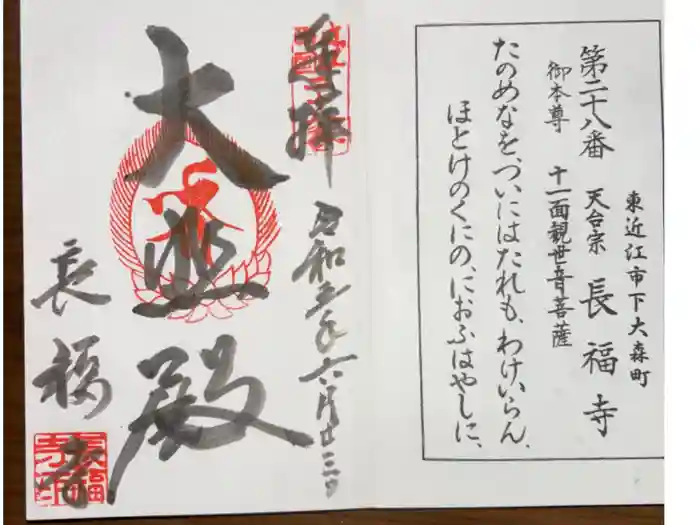 東近江市下大森町
第二十八番 天台宗 長福寺
御本尊 十一面観世音菩薩
たのめなを、ついにはたれも、わけいらん、
ほとけのくにの、におふはやしに、
奉拝
令和五年六月廿三日
大悲殿
長福寺